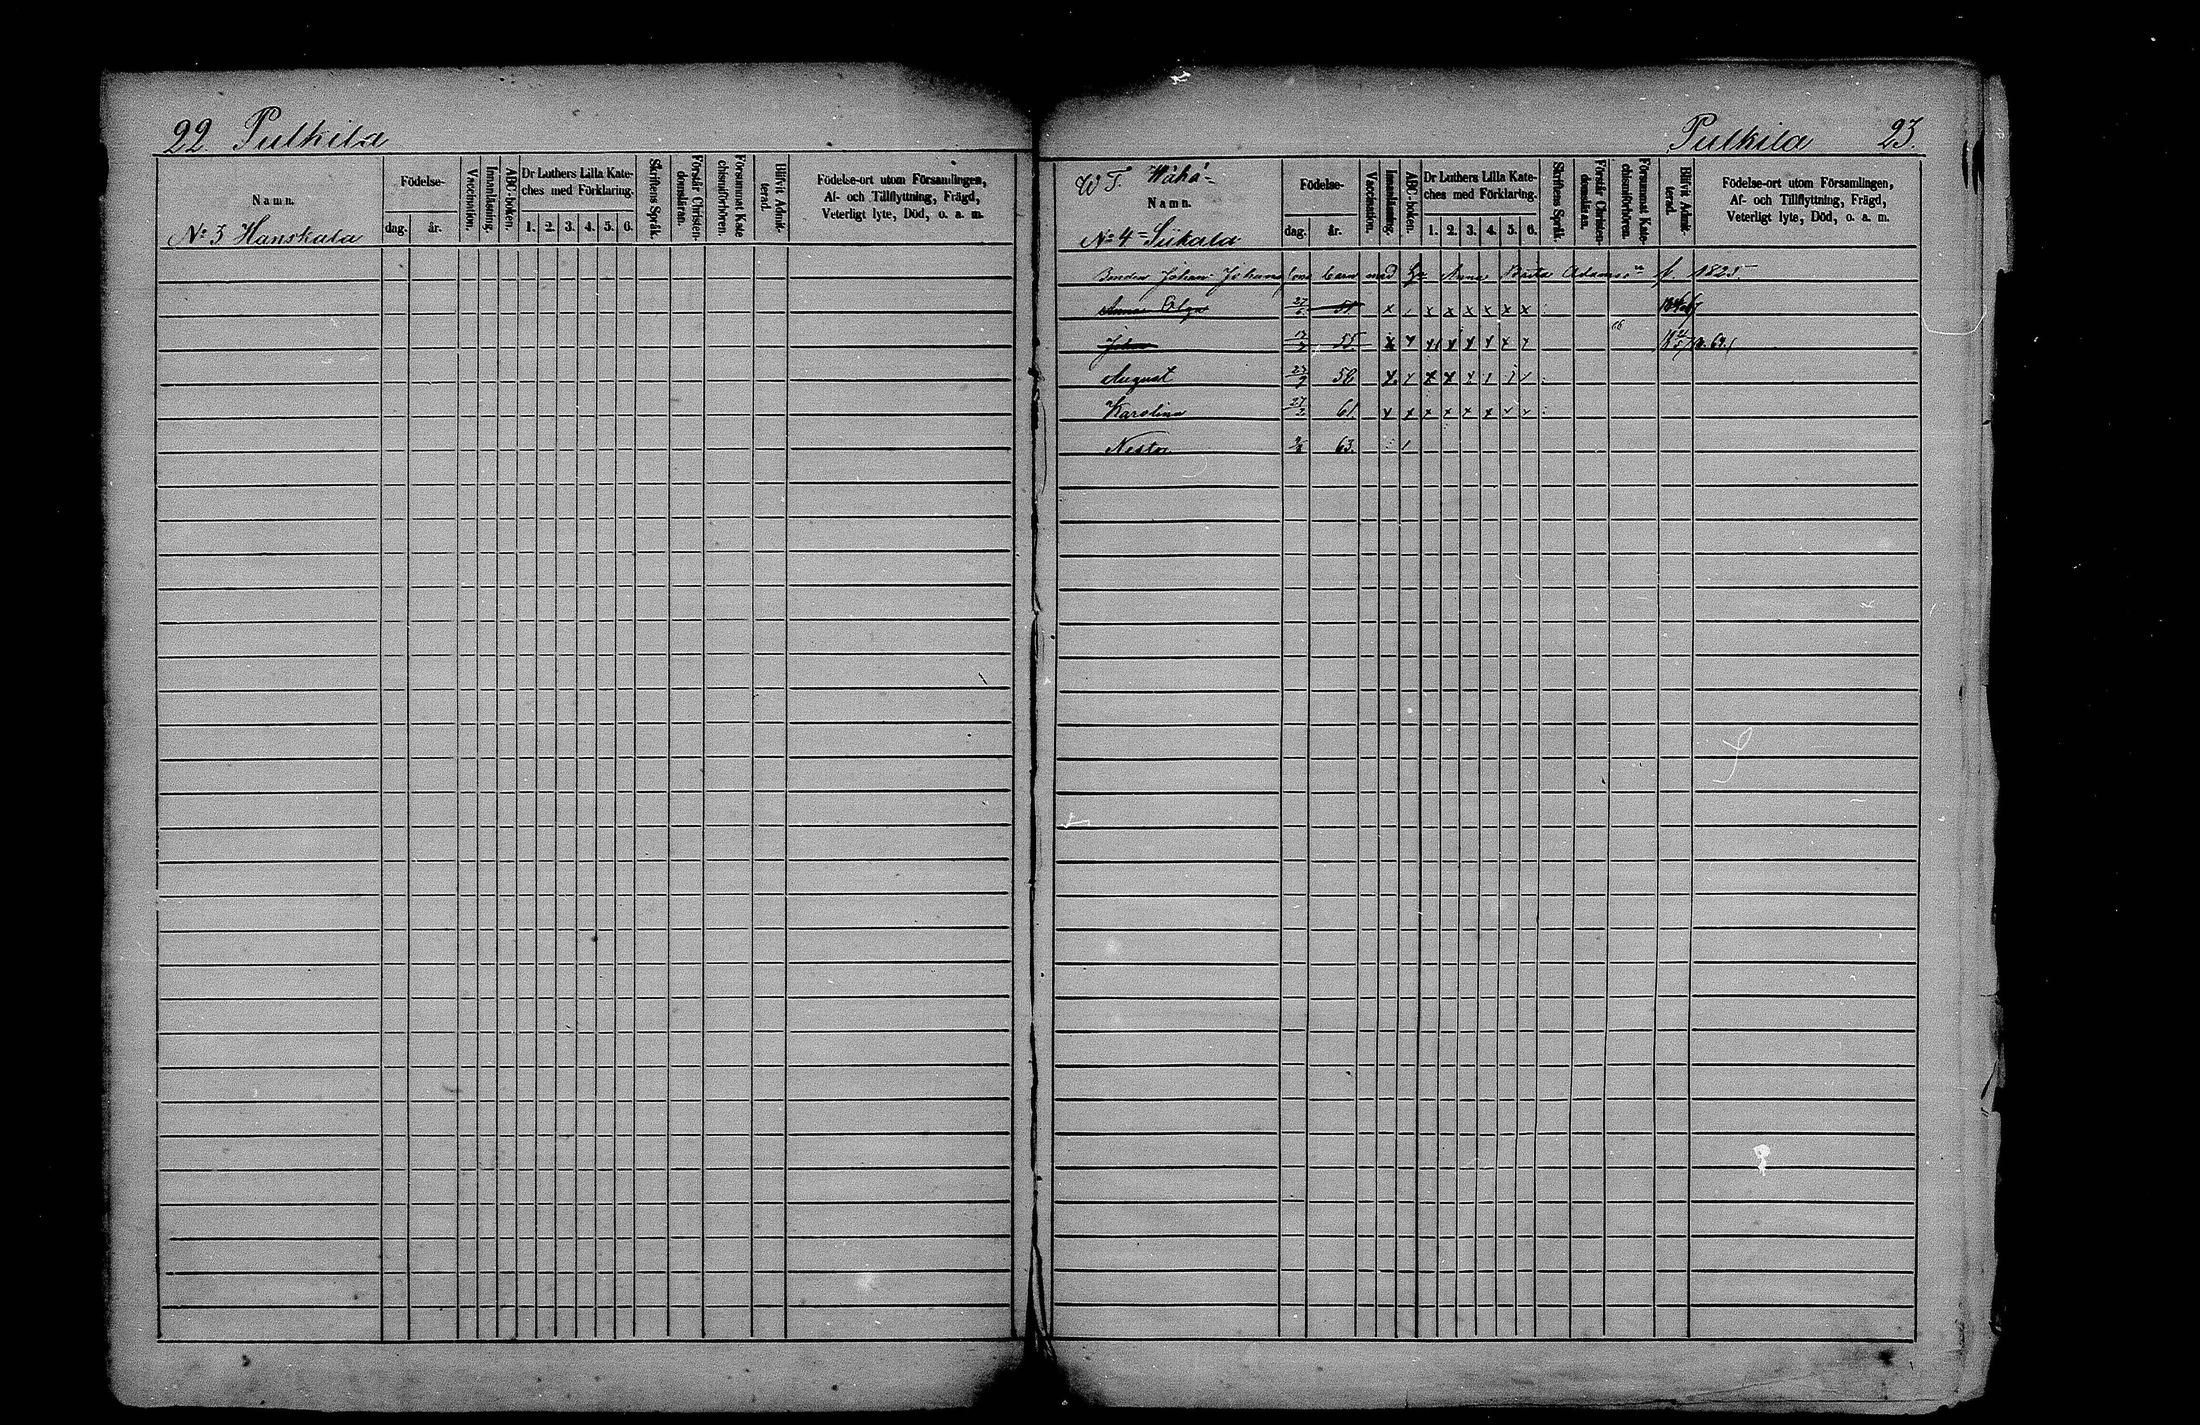 22 Pulkila
Namn.
No 3 Hanskala
Födelse-
dag. år.
Vaccination.
Innanläsning.
ABC-boken.
Dr Luthers Lilla Kate-
ches med Förklaring.
1. 2. 3. 4. 5. 6.
Skriftens Språk.
Förstår Christen-
domsläran.
Försummat Kate
chismiförhören.
Blifvit Admit-
terad.
Födelse-ort utom Församlingen,
Af- och Tillflyttning, Frägd,
Veterligt lyte, Död, o. a. m.
Pulkila 23.
W. T. Wähä-
Namn.
No 4 Siikala
Födelse-
dag. år.
Vaccination.
Innanläsning.
ABC-boken.
Dr Luthers Lilla Kate-
ches med Förklaring.
1. 2. 3. 4. 5. 6.
Skriftens Språk.
Förstår Christen-
domsläran.
Försummat Kate-
chismiförhören.
Blifvit Admit-
terad.
Födelse-ort utom Församlingen,
Af- och Tillflyttning, Frägd,
Veterligt lyte, Död, o. a. m.
Bonden Johan Johansson barn med Anna Adamsdr f. 1828
Anna x x x x x x x
Johan 55
August 56
Karolina 27/2 61 x x x x x x x x
Nestor 63.